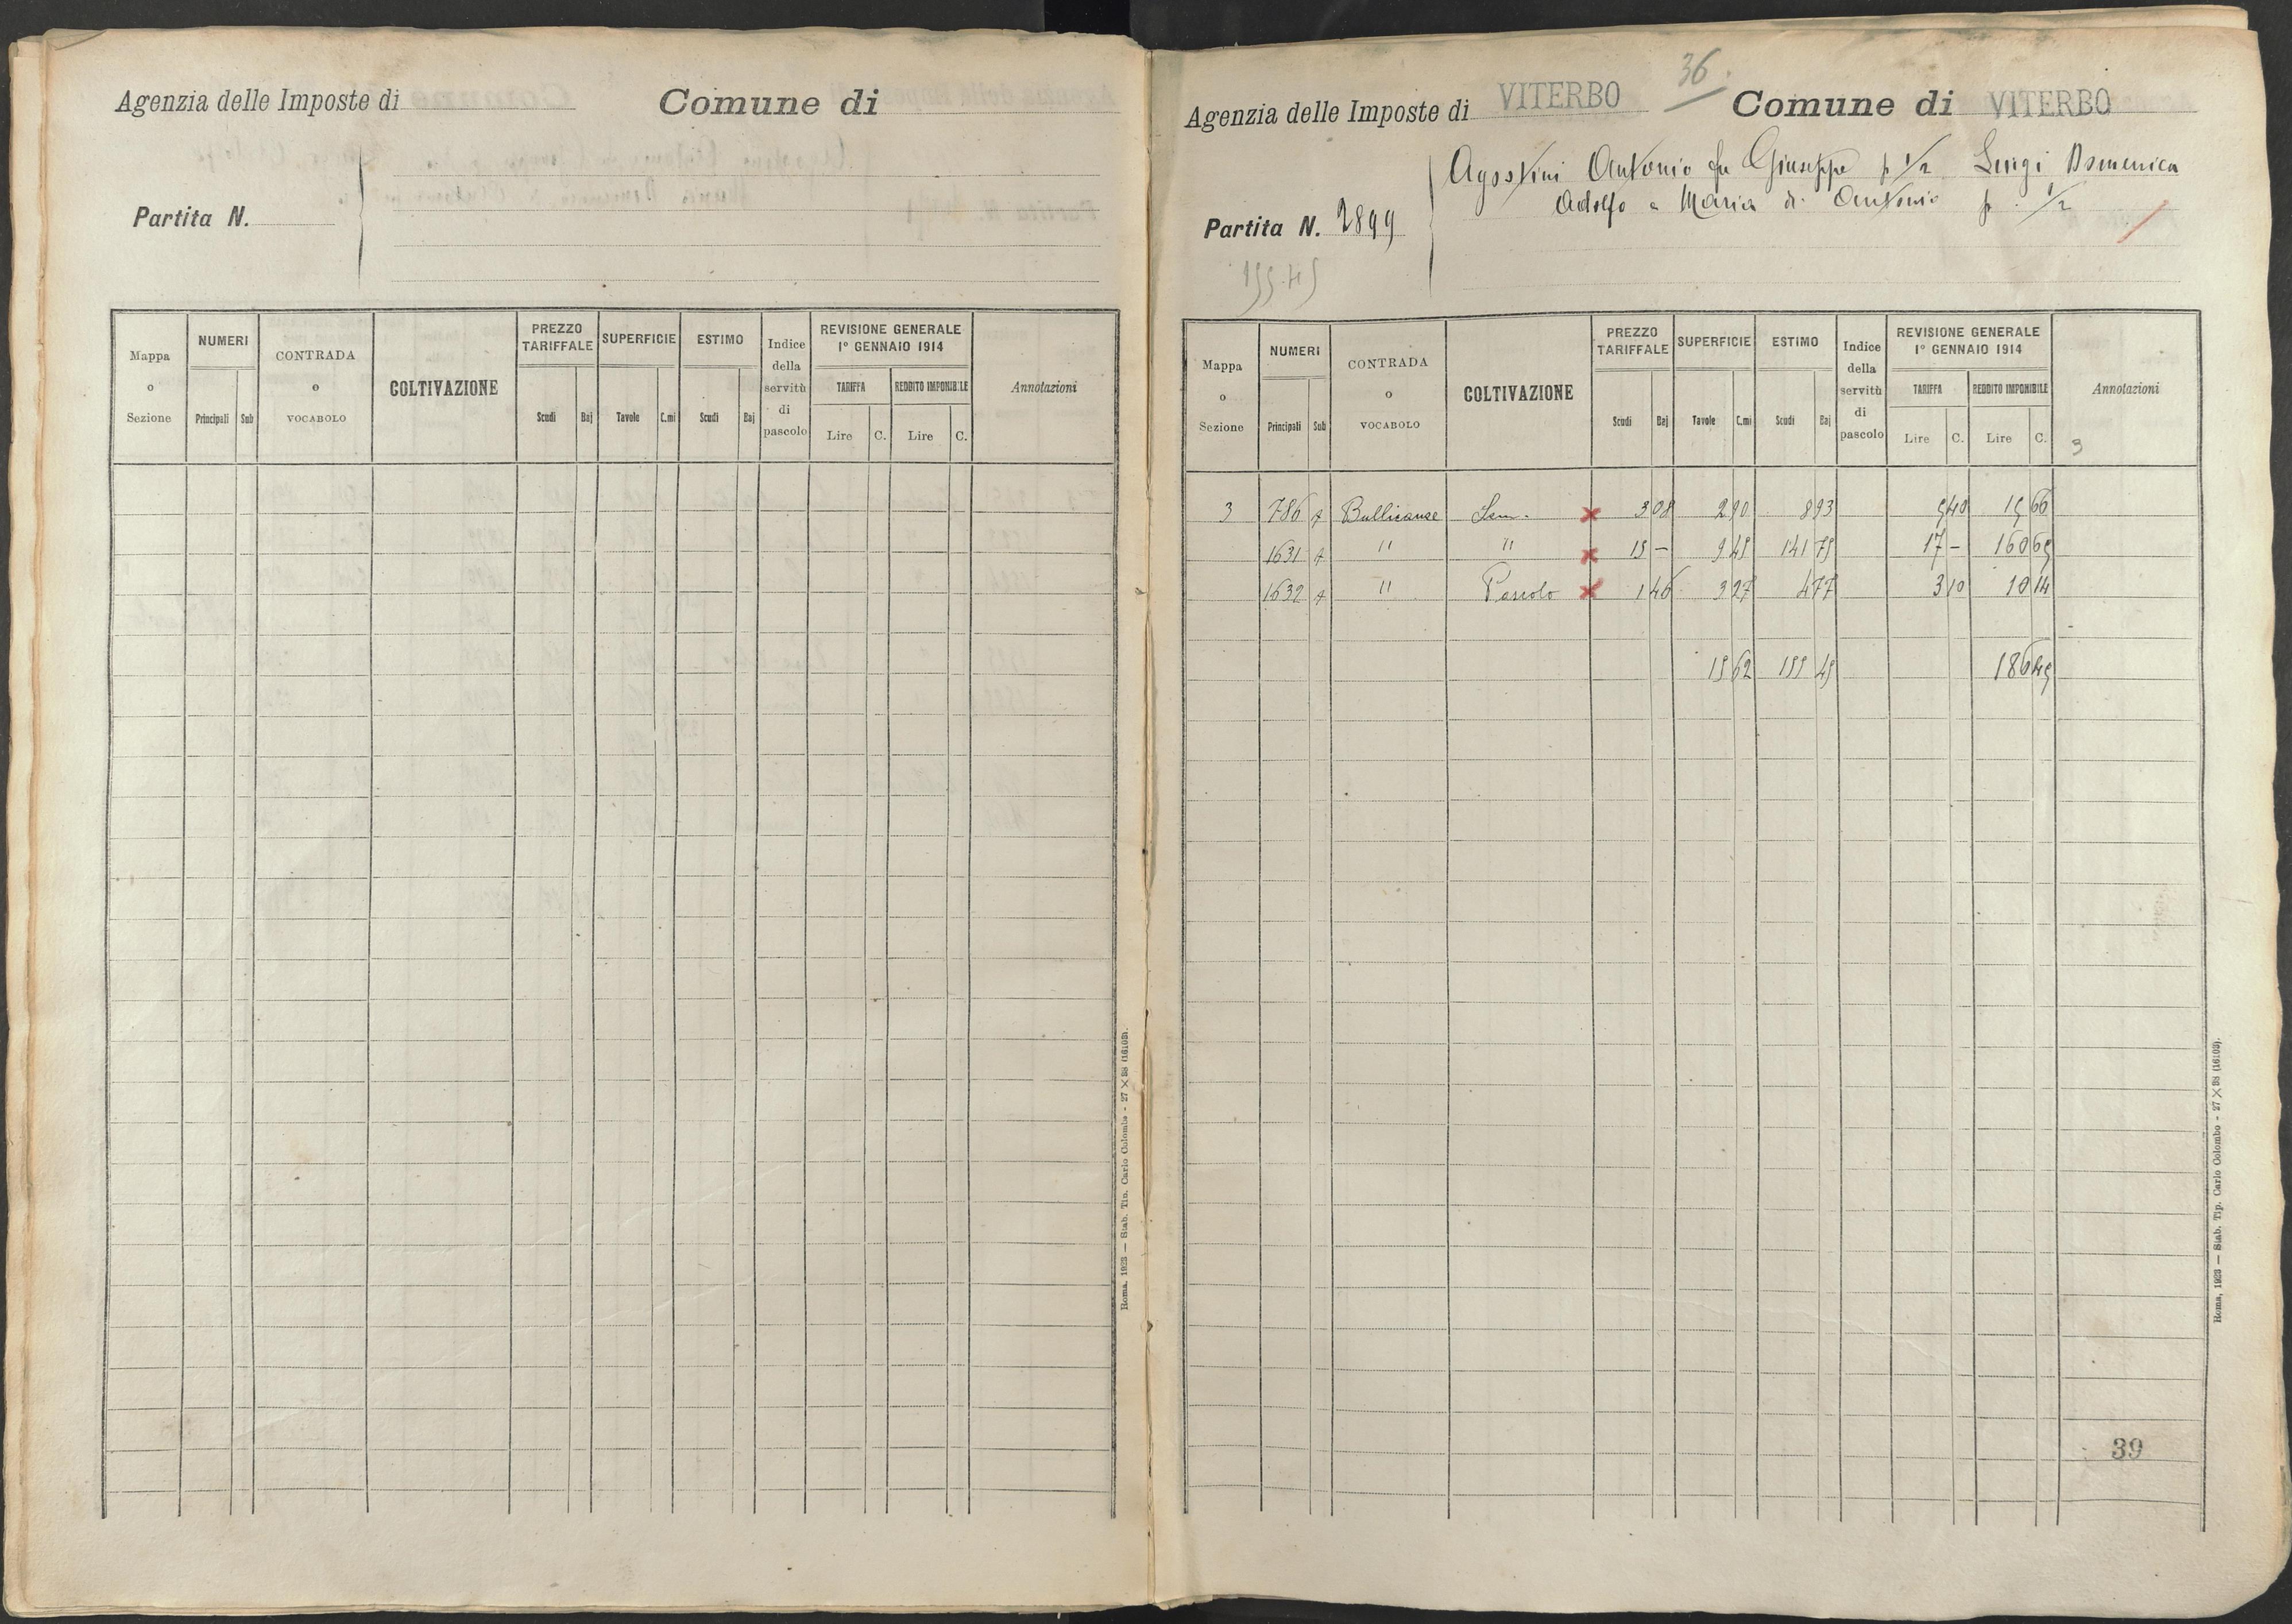 Agenzia delle Imposte di
Comune di
Partita N.
Mappa o Sezione
NUMERI
Principali
Sub
CONTRADA o VOCABOLO
COLTIVAZIONE
PREZZO TARIFFALE
Scudi
Baj
SUPERFICIE
Tavole
C.mi
ESTIMO
Scudi
Baj
Indice della servitù di pascolo
REVISIONE GENERALE
1° GENNAIO 1914
TARIFFA
Lire
C.
REDDITO IMPONIBILE
Lire
C.
Annotazioni
Roma, 1923 — Stab. Tip. Carlo Colombo - 27 × 38 (16103).
36
Agenzia delle Imposte di VITERBO Comune di VITERBO
Agostini Antonio fu Giuseppe p 1/2 Luigi Domenica
Adolfo e Maria di Antonio p. 1/2
Partita N. 2899
155.45
Mappa o Sezione
NUMERI
Principali
Sub
CONTRADA o VOCABOLO
COLTIVAZIONE
PREZZO TARIFFALE
Scudi
Baj
SUPERFICIE
Tavole
C.mi
ESTIMO
Scudi
Baj
Indice della servitù di pascolo
REVISIONE GENERALE
1° GENNAIO 1914
TARIFFA
Lire
C.
REDDITO IMPONIBILE
Lire
C.
Annotazioni
3
3 786 Bullicame Sem. × 3 08 2 90 8 93 5 40 15 66
1631 " " × 15 - 9 45 141 75 17 - 160 65
1632 " Pascolo × 1 46 3 27 4 77 3 10 10 14
15 62 155 45 186 45
39
Roma, 1923 — Stab. Tip. Carlo Colombo - 27 × 38 (16103).